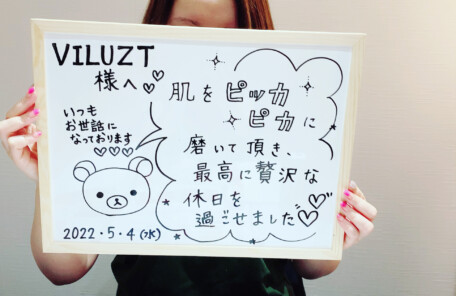 VILUZT
様へ♡♡
いつも
お世話に
なっております
♡♡♡
肌をピッカ
ピカに
磨いて頂き、
最高に贅沢な
休日を
過ごせました♡♡
2022・5・4(水)